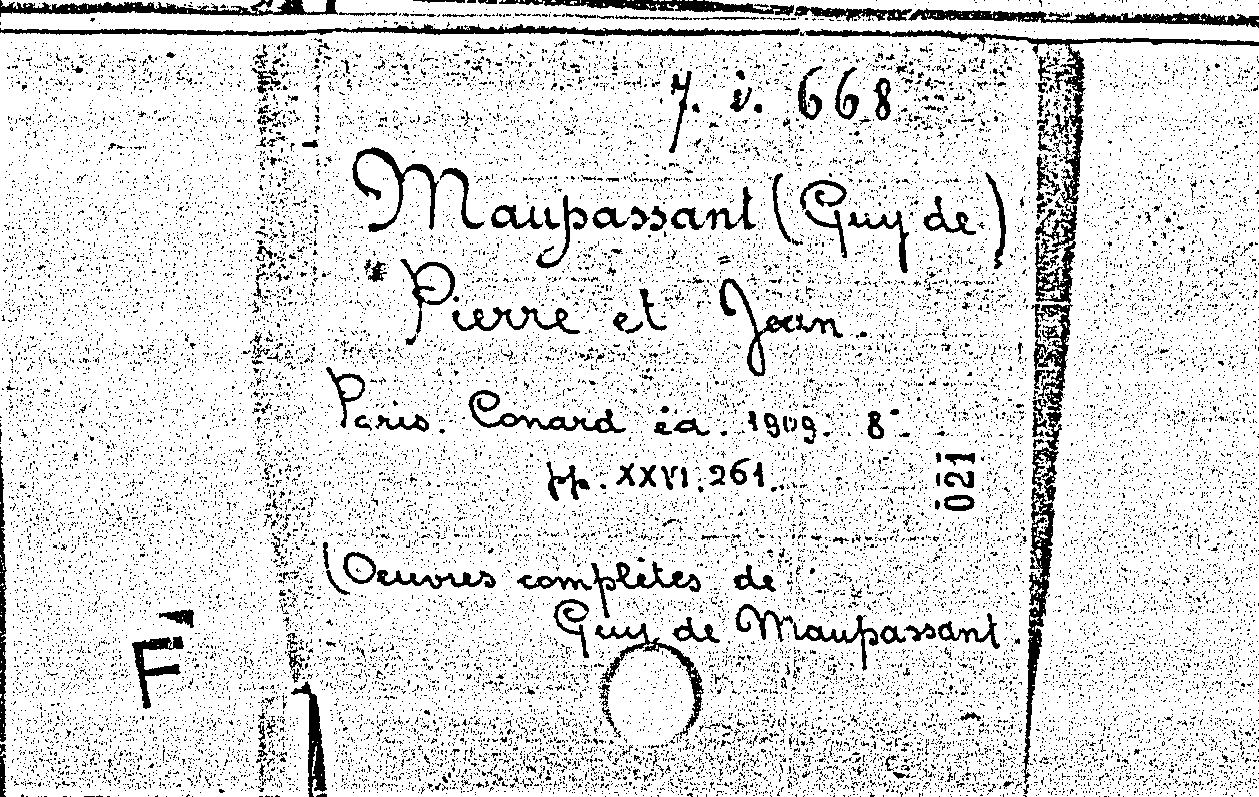 7. i. 668
Maupassant (Guy de)
Pierre et Jean.
Paris. Conard éd. 1909. 8°.
pp. XXVI. 261.
021
(Oeuvres complètes de
Guy de Maupassant.
F